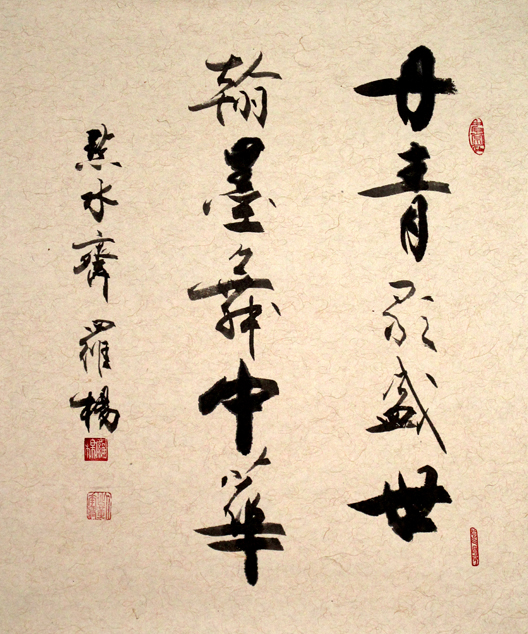 丹青歌盛世
翰墨舞中華
點水齋羅楊